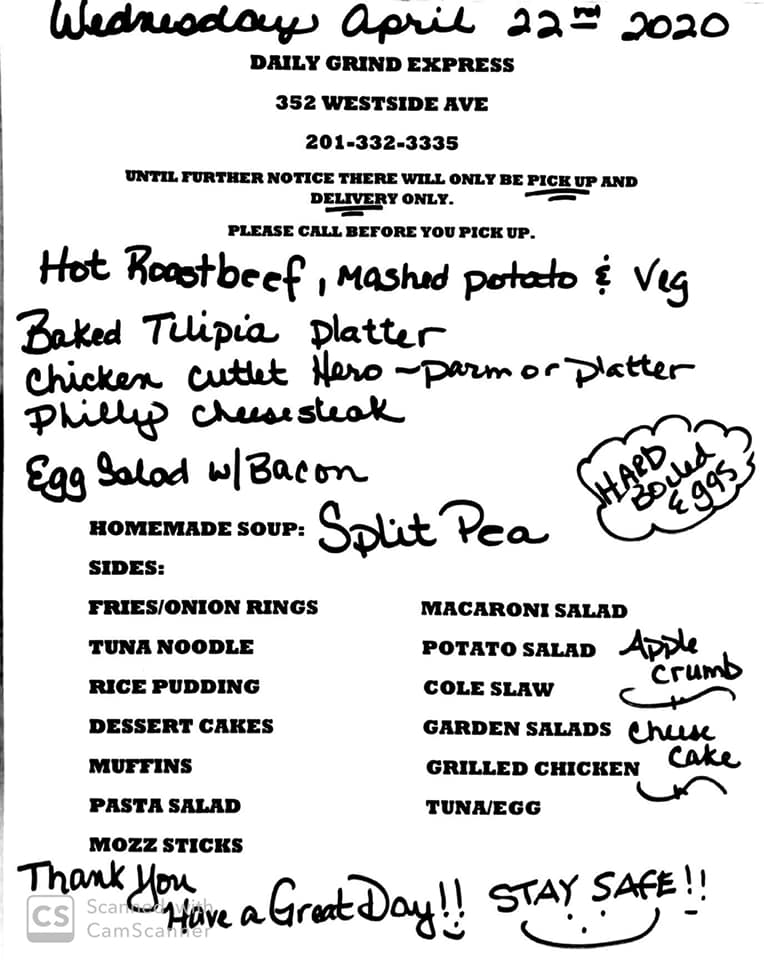 Wednesday April 22nd 2020
DAILY GRIND EXPRESS
352 WESTSIDE AVE
201-332-3335
UNTIL FURTHER NOTICE THERE WILL ONLY BE PICK UP AND
DELIVERY ONLY.
PLEASE CALL BEFORE YOU PICK UP.
Hot Roastbeef, Mashed potato & Veg
Baked Tilipia Platter
Chicken Cutlet Hero ~ Parm or Platter
Philly Cheesesteak
Egg Salad w/Bacon
HARD
Boiled
Eggs
HOMEMADE SOUP: Split Pea
SIDES:
FRIES/ONION RINGS
TUNA NOODLE
RICE PUDDING
DESSERT CAKES
MUFFINS
PASTA SALAD
MOZZ STICKS
MACARONI SALAD
POTATO SALAD
COLE SLAW
GARDEN SALADS
GRILLED CHICKEN
TUNA/EGG
Apple
Crumb
Cheese
Cake
Thank You
Have a Great Day!!
STAY SAFE!!
CS
Scanned with
CamScanner